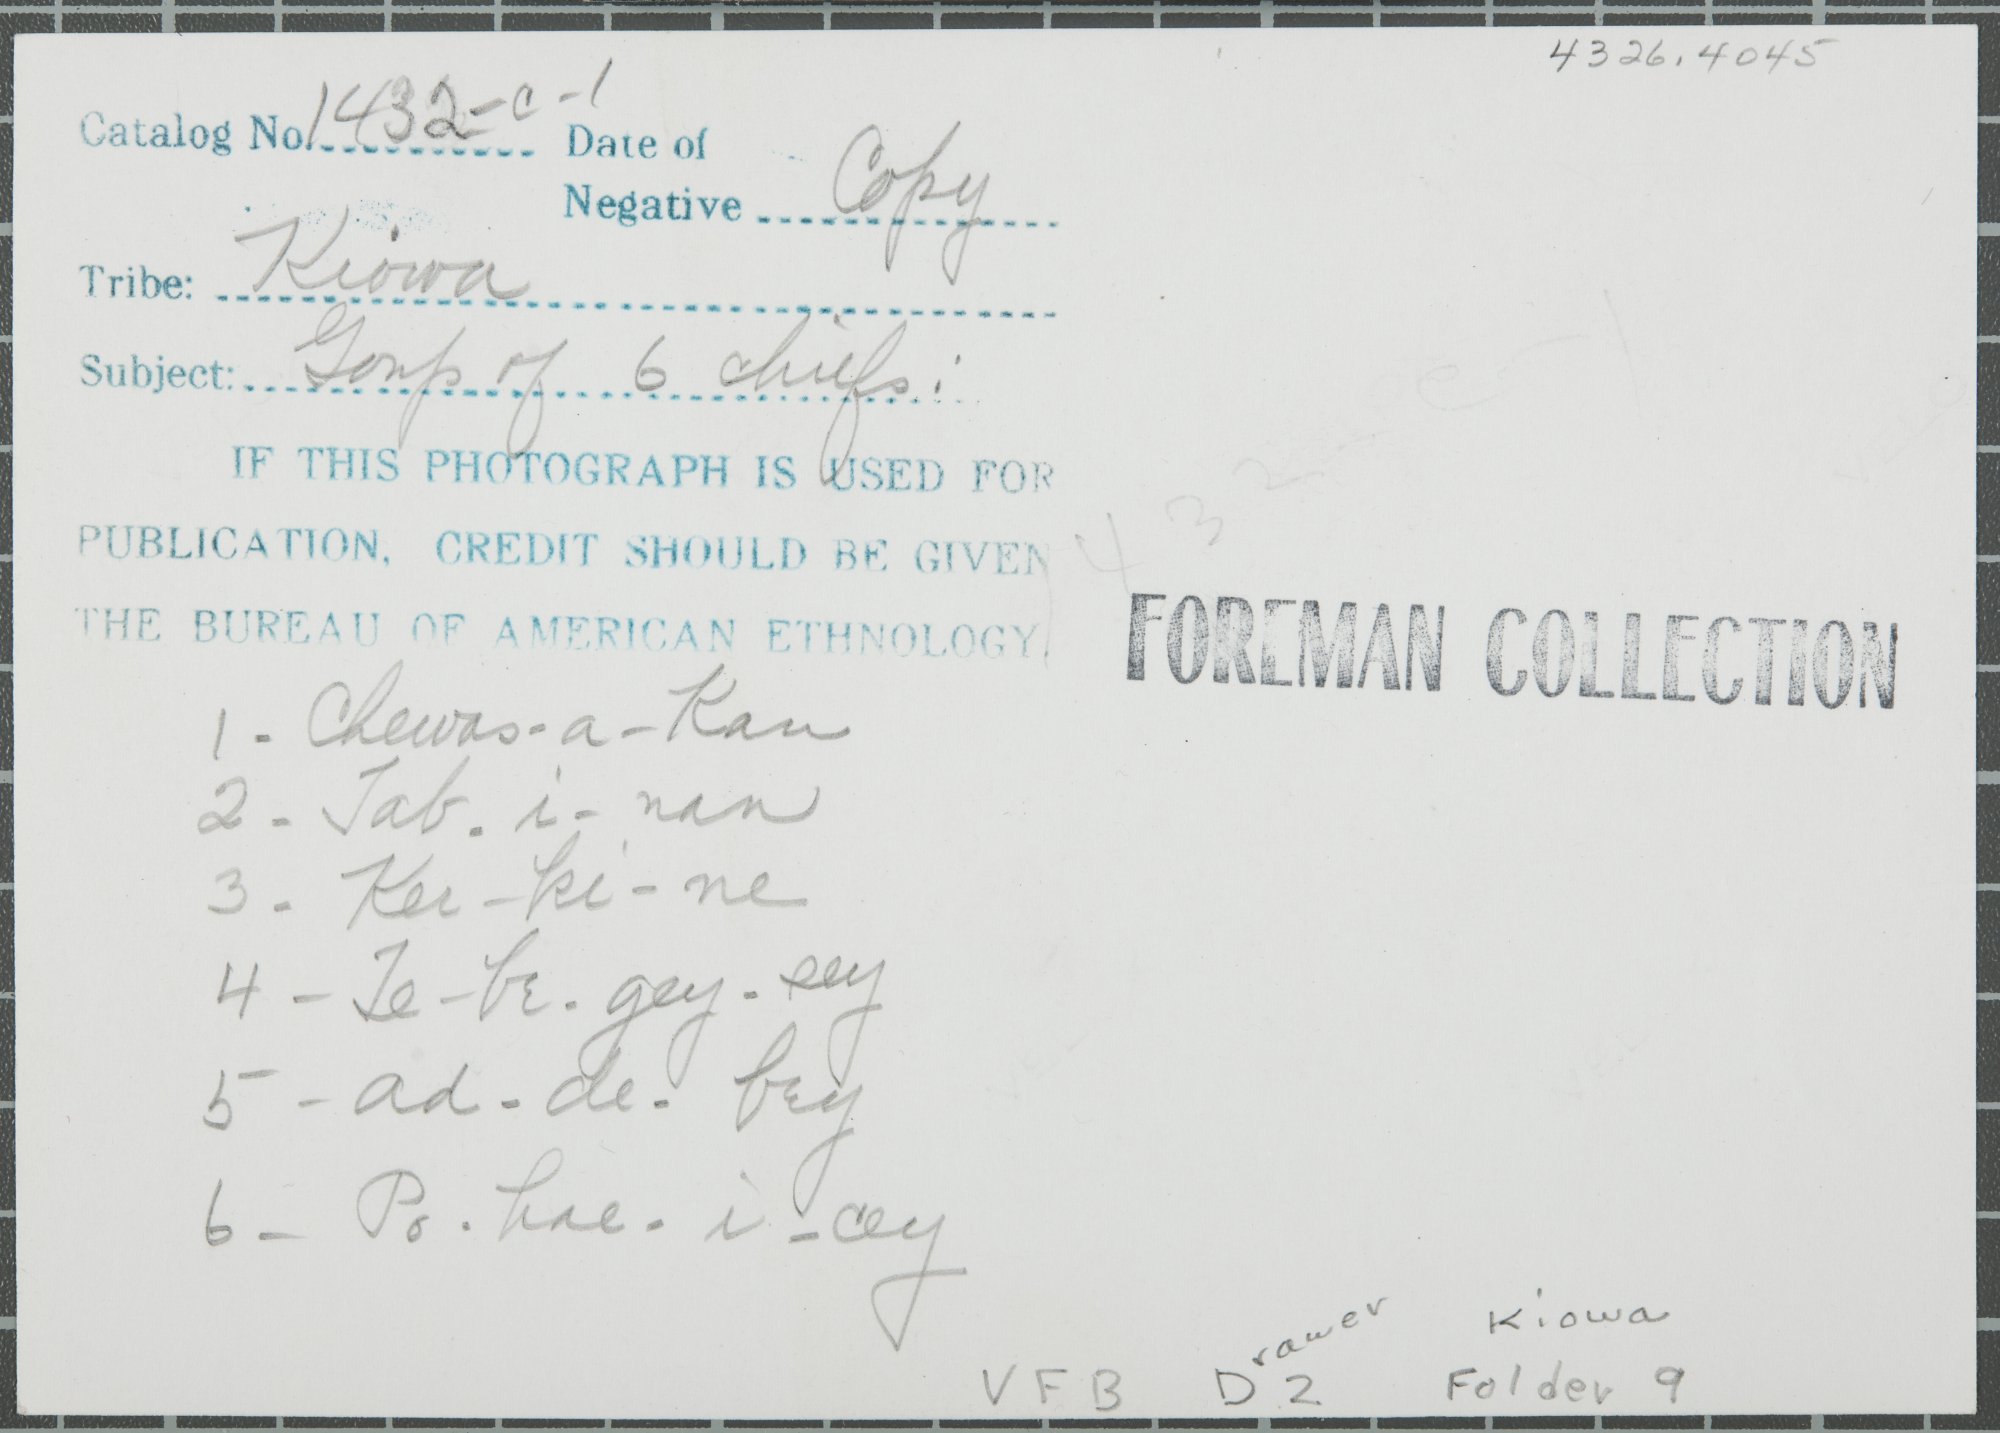 4326.4045
Catalog No. 1432-c-1 Date of
Negative Copy
Tribe: Kiowa
Subject: Goup of 6 chiefs:
IF THIS PHOTOGRAPH IS USED FOR
PUBLICATION, CREDIT SHOULD BE GIVEN
THE BUREAU OF AMERICAN ETHNOLOGY.
FOREMAN COLLECTION
1 - Chewas-a-Kan
2 - Tab-i-nan
3 - Ker-ki-ne
4 - Te-be-gey-sey
5 - ad-de-bey
6 - Po-hae-i-cey
Kiowa
VFB Drawer 2 Folder 9